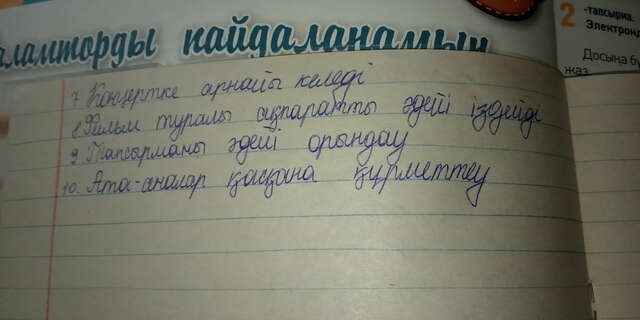 аламторды пайдаланамын
2
-тапсырма.
Электронд
Досыңа бұ
жаз
7. Концертке арнайы келеді
8. Фильм туралы ақпаратты әдейі іздейді
9. Тапсырманы әдейі орындау
10. Ата-аналар қасқана құрметтеу